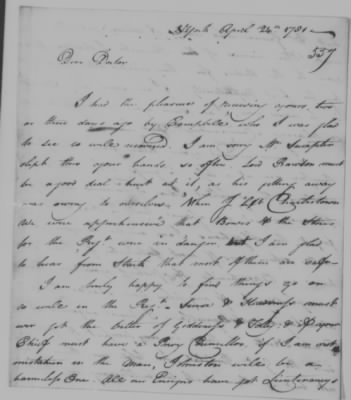 NYork April 24th 1781
337
Dear Doctor
I had the pleasure of receiving yours, two
or three days ago by Campbell who I was glad
to see so well recovered. I am sorry Mr
slipt thro your hands so often Lord Rawdon must
be a good deal hurt at it, as his getting away
was owing to ourselves. When left Charlestown
We were apprehensive that Bowers & the Stores
for the Regt. were in danger but I am glad
to hear from Stark that most of them are safe
I am truly happy to find things go on
so well in the Regt. Sense & must
ever get the better of & Folly & if your
Chief must have a Privy Councillor, if I am not
mistaken in the Man, Johnston will be a
harmless One. All our Ensigns have got Lieutenancys